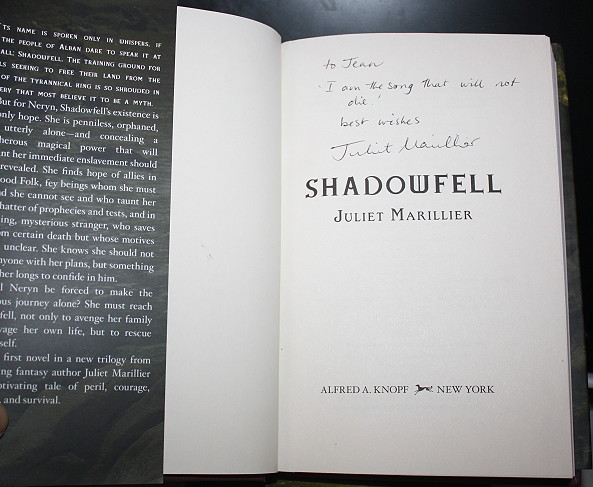 TS NAME IS SPOKEN ONLY IN WHISPERS, IF
THE PEOPLE OF ALBAN DARE TO SPEAK IT AT
ALL: SHADOWFELL. THE TRAINING GROUND FOR
LS SEEKING TO FREE THEIR LAND FROM THE
OF THE TYRANNICAL KING IS SO SHROUDED IN
ERY THAT MOST BELIEVE IT TO BE A MYTH.
But for Neryn, Shadowfell's existence is
only hope. She is penniless, orphaned,
utterly alone—and concealing a
herous magical power that will
ant her immediate enslavement should
revealed. She finds hope of allies in
ood Folk, fey beings whom she must
d she cannot see and who taunt her
hatter of prophecies and tests, and in
ing, mysterious stranger, who saves
om certain death but whose motives
unclear. She knows she should not
nyone with her plans, but something
her longs to confide in him.
l Neryn be forced to make the
ous journey alone? She must reach
fell, not only to avenge her family
vage her own life, but to rescue
self.
first novel in a new trilogy from
ing fantasy author Juliet Marillier
ptivating tale of peril, courage,
, and survival.
to Jean
'I am the song that will not
die.'
best wishes
Juliet Marillier
SHADOWFELL
JULIET MARILLIER
ALFRED A. KNOPF NEW YORK